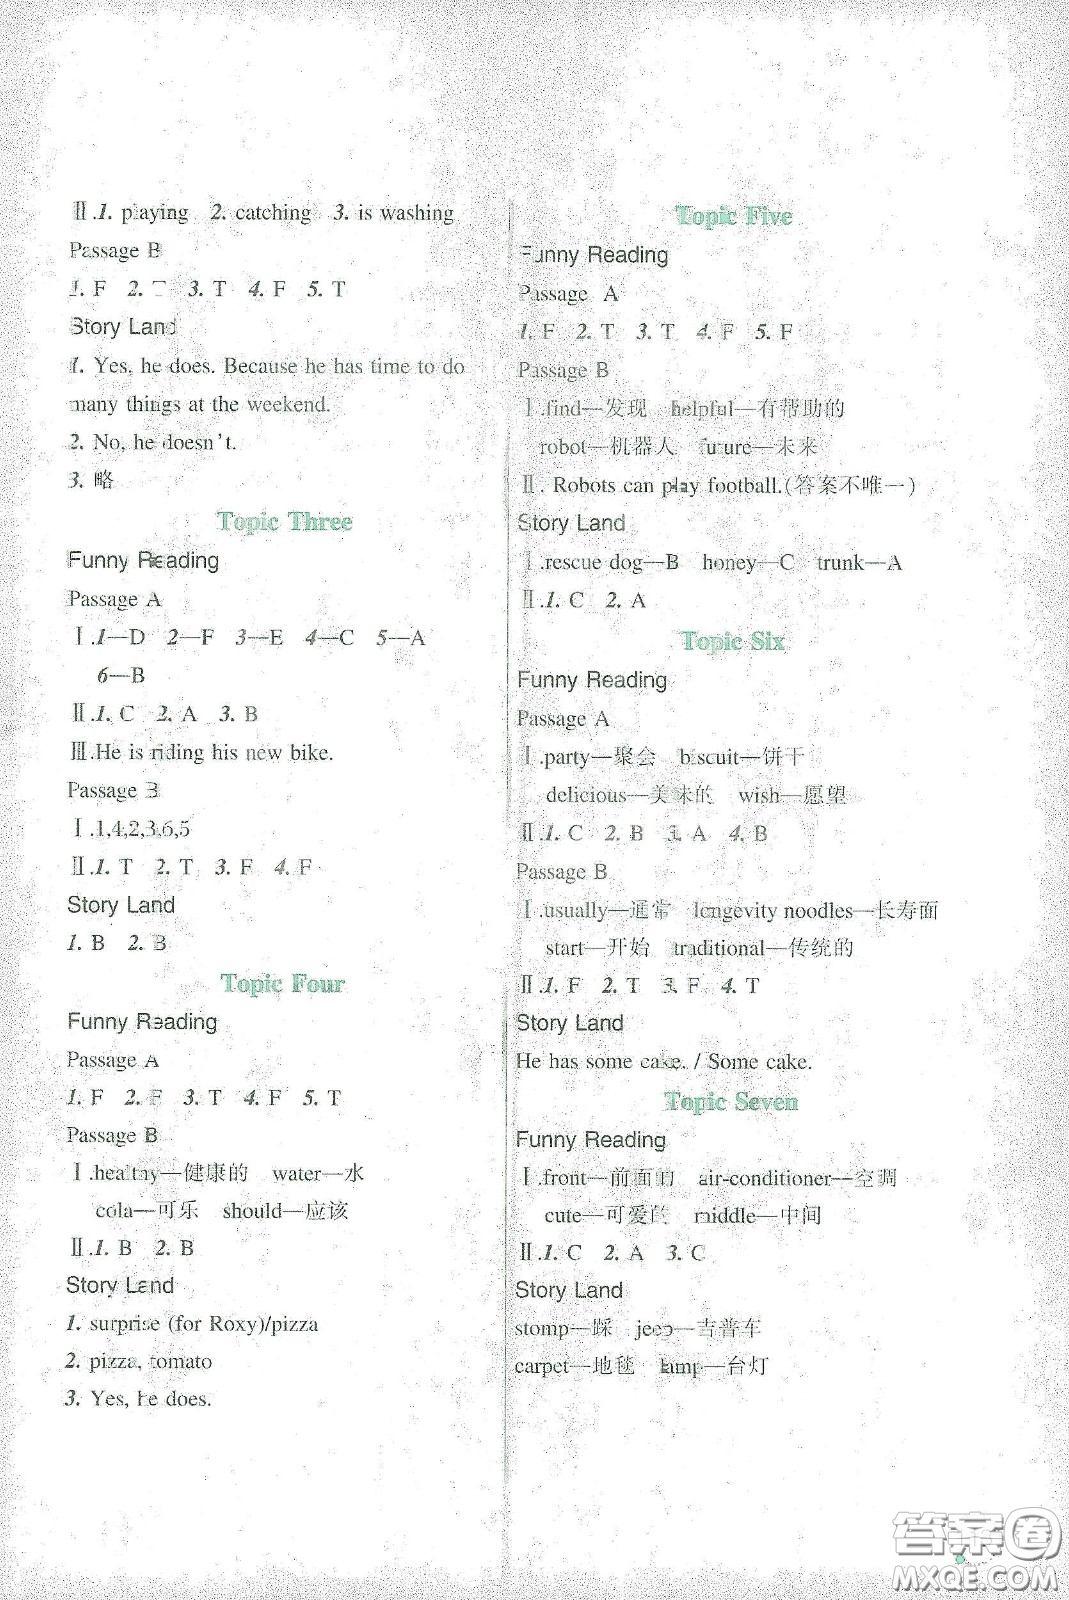 Ⅱ.1. playing 2. catching 3. is washing
Passage B
1. F 2. T 3. T 4. F 5. T
Story Land
1. Yes, he does. Because he has time to do
many things at the weekend.
2. No, he doesn't.
3. 略
Topic Three
Funny Reading
Passage A
Ⅰ.1—D 2—F 3—E 4—C 5—A
6—B
Ⅱ.1. C 2. A 3. B
Ⅲ.He is riding his new bike.
Passage B
Ⅰ.1,4,2,3,6,5
Ⅱ.1. T 2. T 3. F 4. F
Story Land
1. B 2. B
Topic Four
Funny Reading
Passage A
1. F 2. F 3. T 4. F 5. T
Passage B
Ⅰ.healthy—健康的 water—水
cola—可乐 should—应该
Ⅱ.1. B 2. B
Story Land
1. surprise (for Roxy)/pizza
2. pizza, tomato
3. Yes, he does.
Topic Five
Funny Reading
Passage A
1. F 2. T 3. T 4. F 5. F
Passage B
Ⅰ.find—发现 helpful—有帮助的
robot—机器人 future—未来
Ⅱ. Robots can play football.(答案不唯一)
Story Land
Ⅰ.rescue dog—B honey—C trunk—A
Ⅱ.1. C 2. A
Topic Six
Funny Reading
Passage A
Ⅰ.party—聚会 biscuit—饼干
delicious—美味的 wish—愿望
Ⅱ.1. C 2. B 3. A 4. B
Passage B
Ⅰ.usually—通常 longevity noodles—长寿面
start—开始 traditional—传统的
Ⅱ.1. F 2. T 3. F 4. T
Story Land
He has some cake. / Some cake.
Topic Seven
Funny Reading
Ⅰ.front—前面的 air-conditioner—空调
cute—可爱的 middle—中间
Ⅱ.1. C 2. A 3. C
Story Land
stomp—踩 jeep—吉普车
carpet—地毯 lamp—台灯
答案圈
MXQE.COM